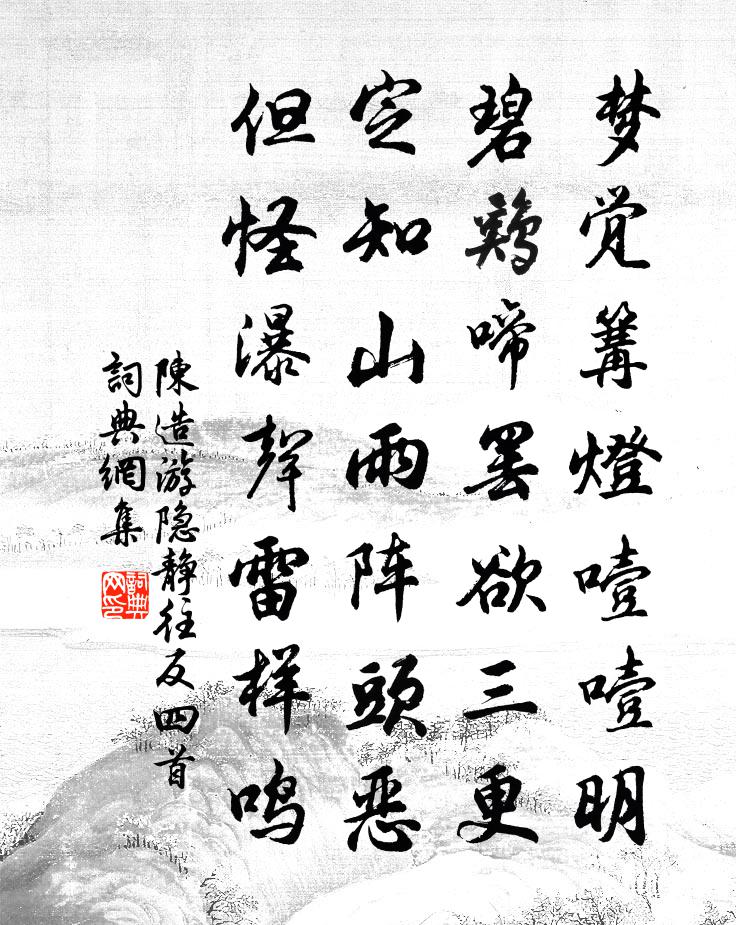 梦觉篝燈噎噎明
碧鷄啼罢欲三更
定知山雨阵頭恶
但怪瀑聲雷样鸣
陳造游隐静往反四首
詞典網集
詞典
网印